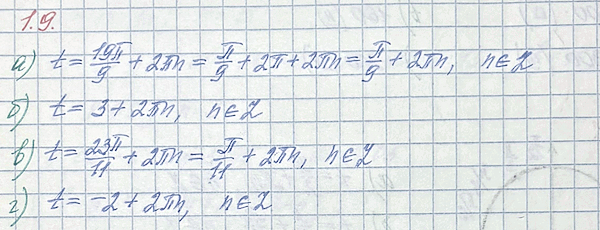 1.9.
а) t = 19π/9 + 2πn = π/9 + 2π + 2πn = π/9 + 2πn, n∈Z
б) t = 3 + 2πn, n∈Z
в) t = 23π/11 + 2πn = π/11 + 2πn, n∈Z
г) t = -2 + 2πn, n∈Z